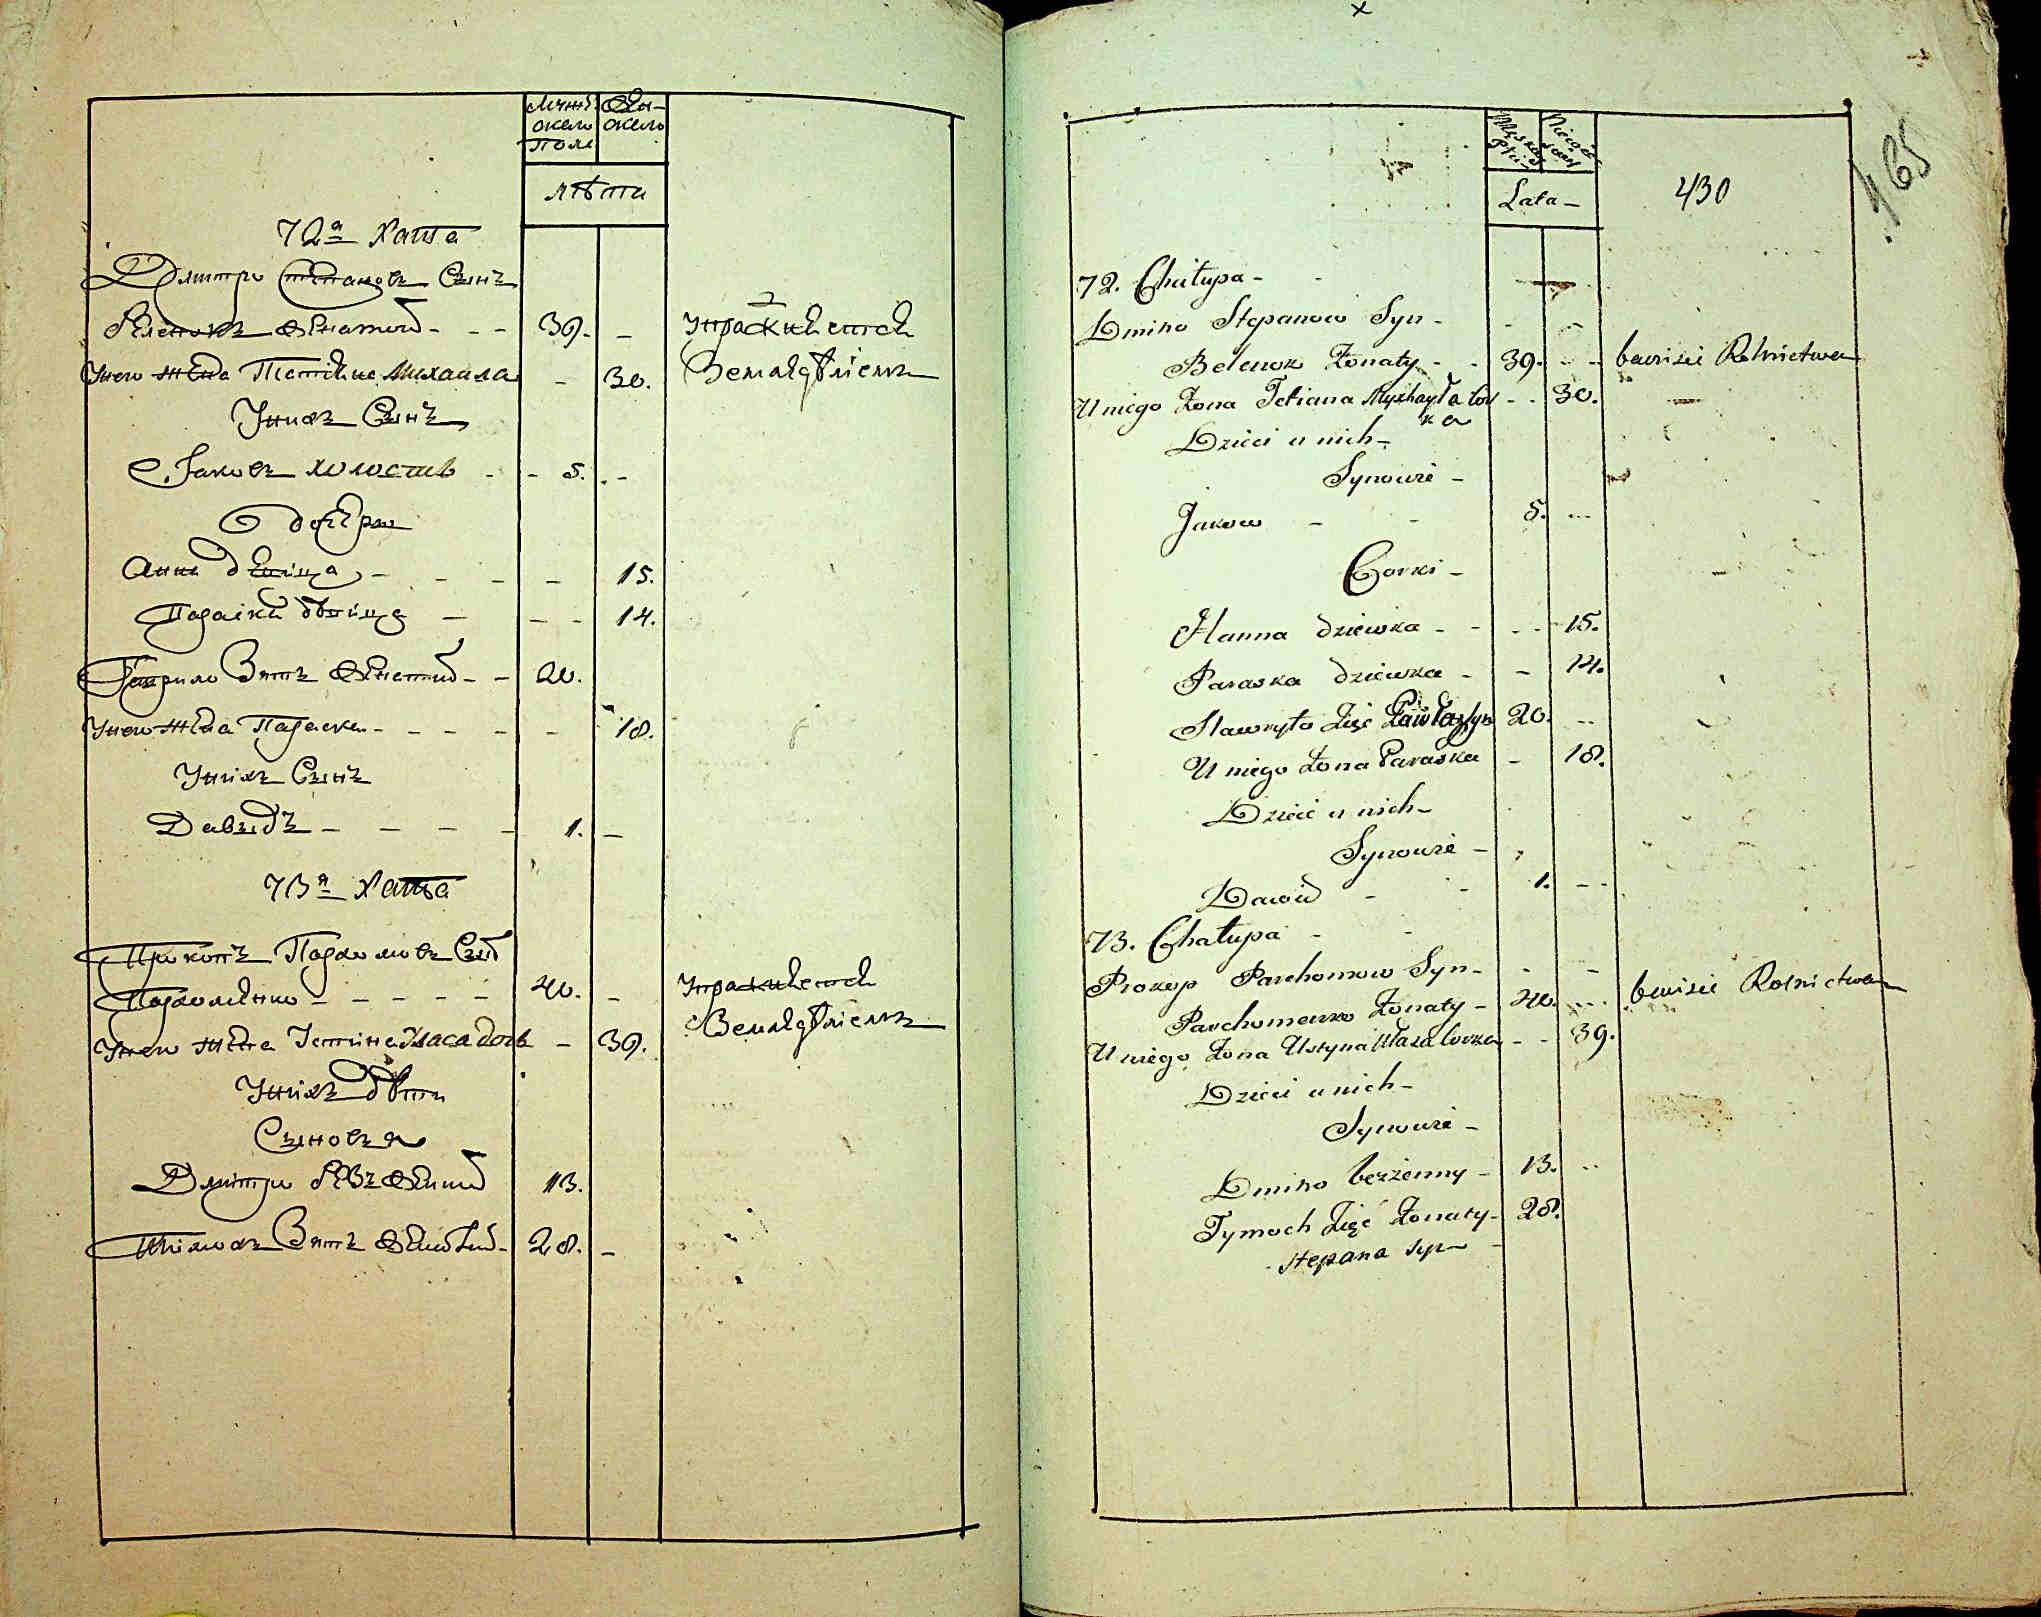 мужс. жен-
кого ского
пола
лѣта
72я Хата
Дмитро Степановъ Сынъ
Беленокъ женатый - - - 39. -
Унего жена Тетяна Михаила - 30. Упражняется
Земледѣлiемъ
Унихъ Сынъ
Яковъ холостъ - - 5. -
Дочери
Анна дѣвица - - - - 15.
Параска дѣвица - - - 14.
Гаврило Зять женатый - - 20.
Унего жена Параска - - - - - 18.
Унихъ Сынъ
Давыдъ - - - - 1. -
73я Хата
Прокопъ Пархомовъ Сынъ
Пархоменко - - - - - 40. - Упражняется
Земледѣлiемъ
Унего жена Устина Уласа дочь - 39.
Унихъ дѣти
Сыновья
Дмитро 13.
Тимохъ Зять женатый - 28. -
x
Lata -
430
465
72. Chałupa -
Dmitro Stepanow Syn -
Belenok Żonaty - - 39. - - bawisie Rolnictwem
U niego Żona Tetiana Myxhayła Cor - - 30.
ka
Dzieci u nich -
Synowie -
Jakow - - 5. ...
Corki -
Hanna dziewka - - - - 15.
Paraska dziewka - - 14.
Hawryło Zięć Pawła syn 20. - -
U niego Żona Paraska - 18.
Dzieci u nich -
Synowie -
Dawid - - 1. - -
73. Chałupa -
Prokop Parchomow Syn - - -
Parchomenko Żonaty - 40. ... bawisie Rolnictwem
U niego Żona Ustyna Ułasa Corka - - 39.
Dzieci u nich -
Synowie -
Dmitro bezżenny - 13. ..
Tymoch Zięć Żonaty - 28.
Stepana syn